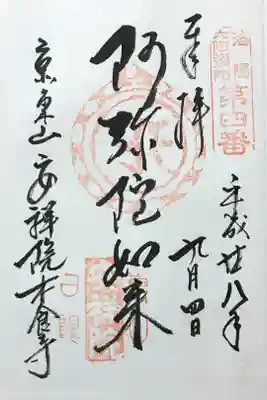 洛陽
六阿彌陀
第四番
平成廿八年
九月四日
奉拝
阿弥陀如来
京東山 安祥院木食寺
日限